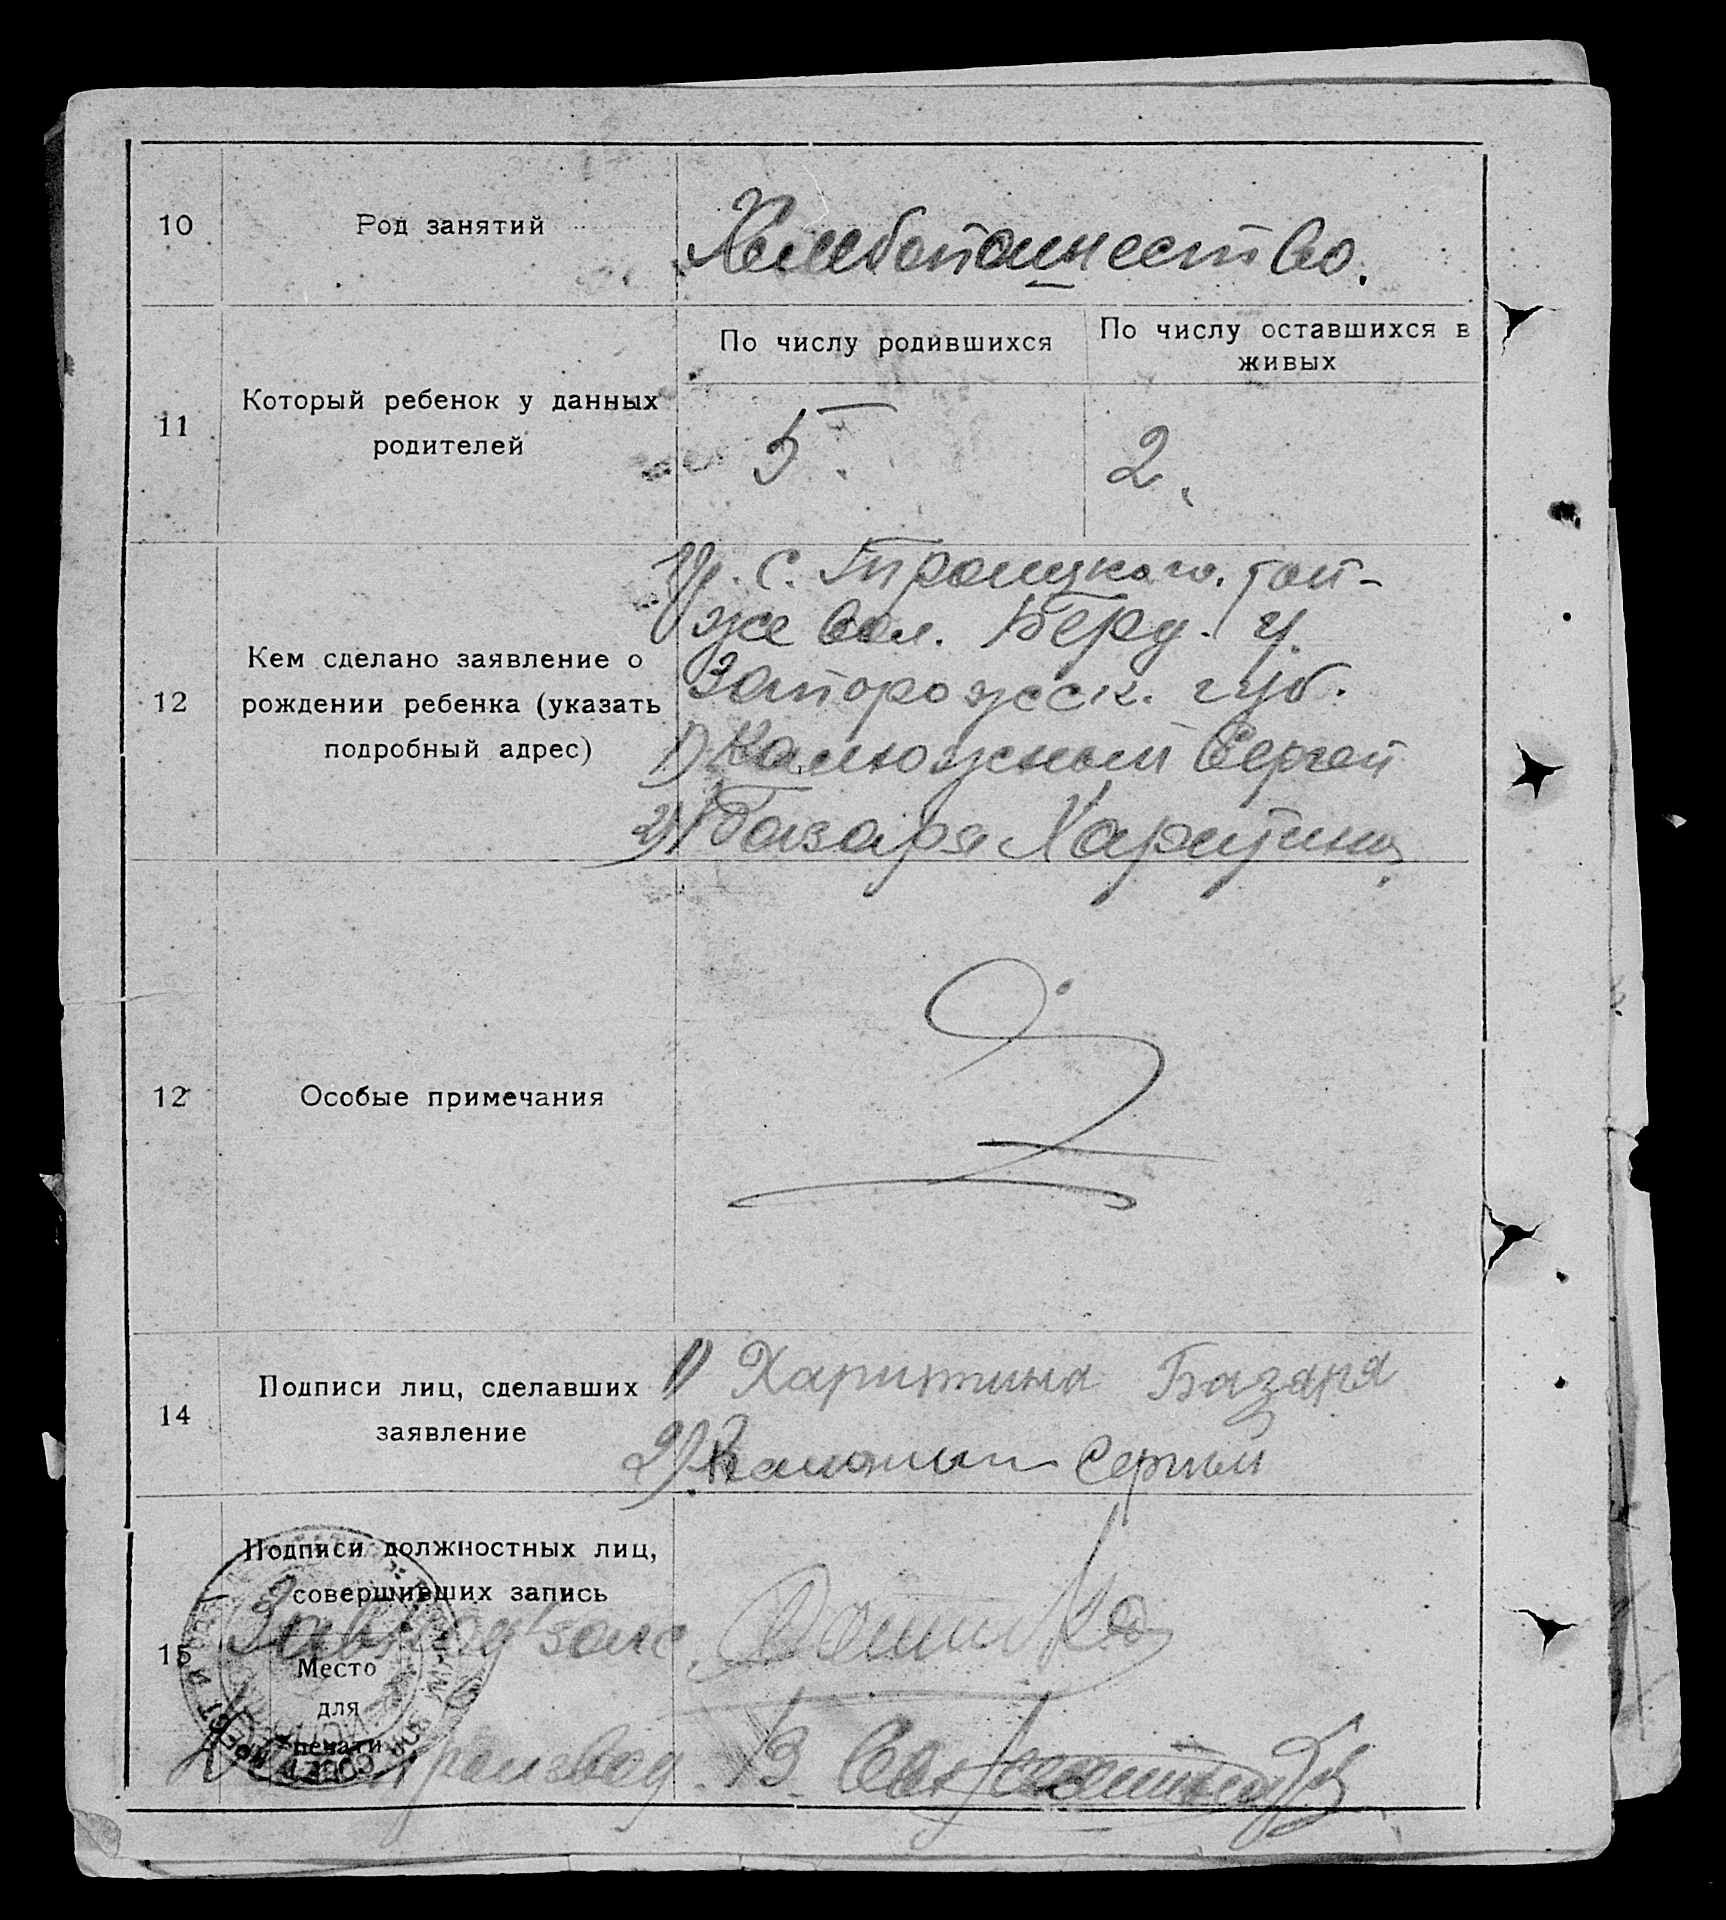 10
Род занятий
Хлебопашество.
11
Который ребенок у данных
родителей
По числу родившихся
По числу оставшихся в
живых
5
2.
12
Кем сделано заявление о
рождении ребенка (указать
подробный адрес)
с. Троицкого, той-
же вол. Берд. у.
Запорожск. губ.
1) Калюжный Сергей
2) Базаря Харитина
12
Особые примечания
14
Подписи лиц, сделавших
заявление
1) Харитина Базаря
2) Калюжный Сергий
15
Подписи должностных лиц,
совершивших запись
Место
для
печати
Зав. подзагс.
Делопроизвод.